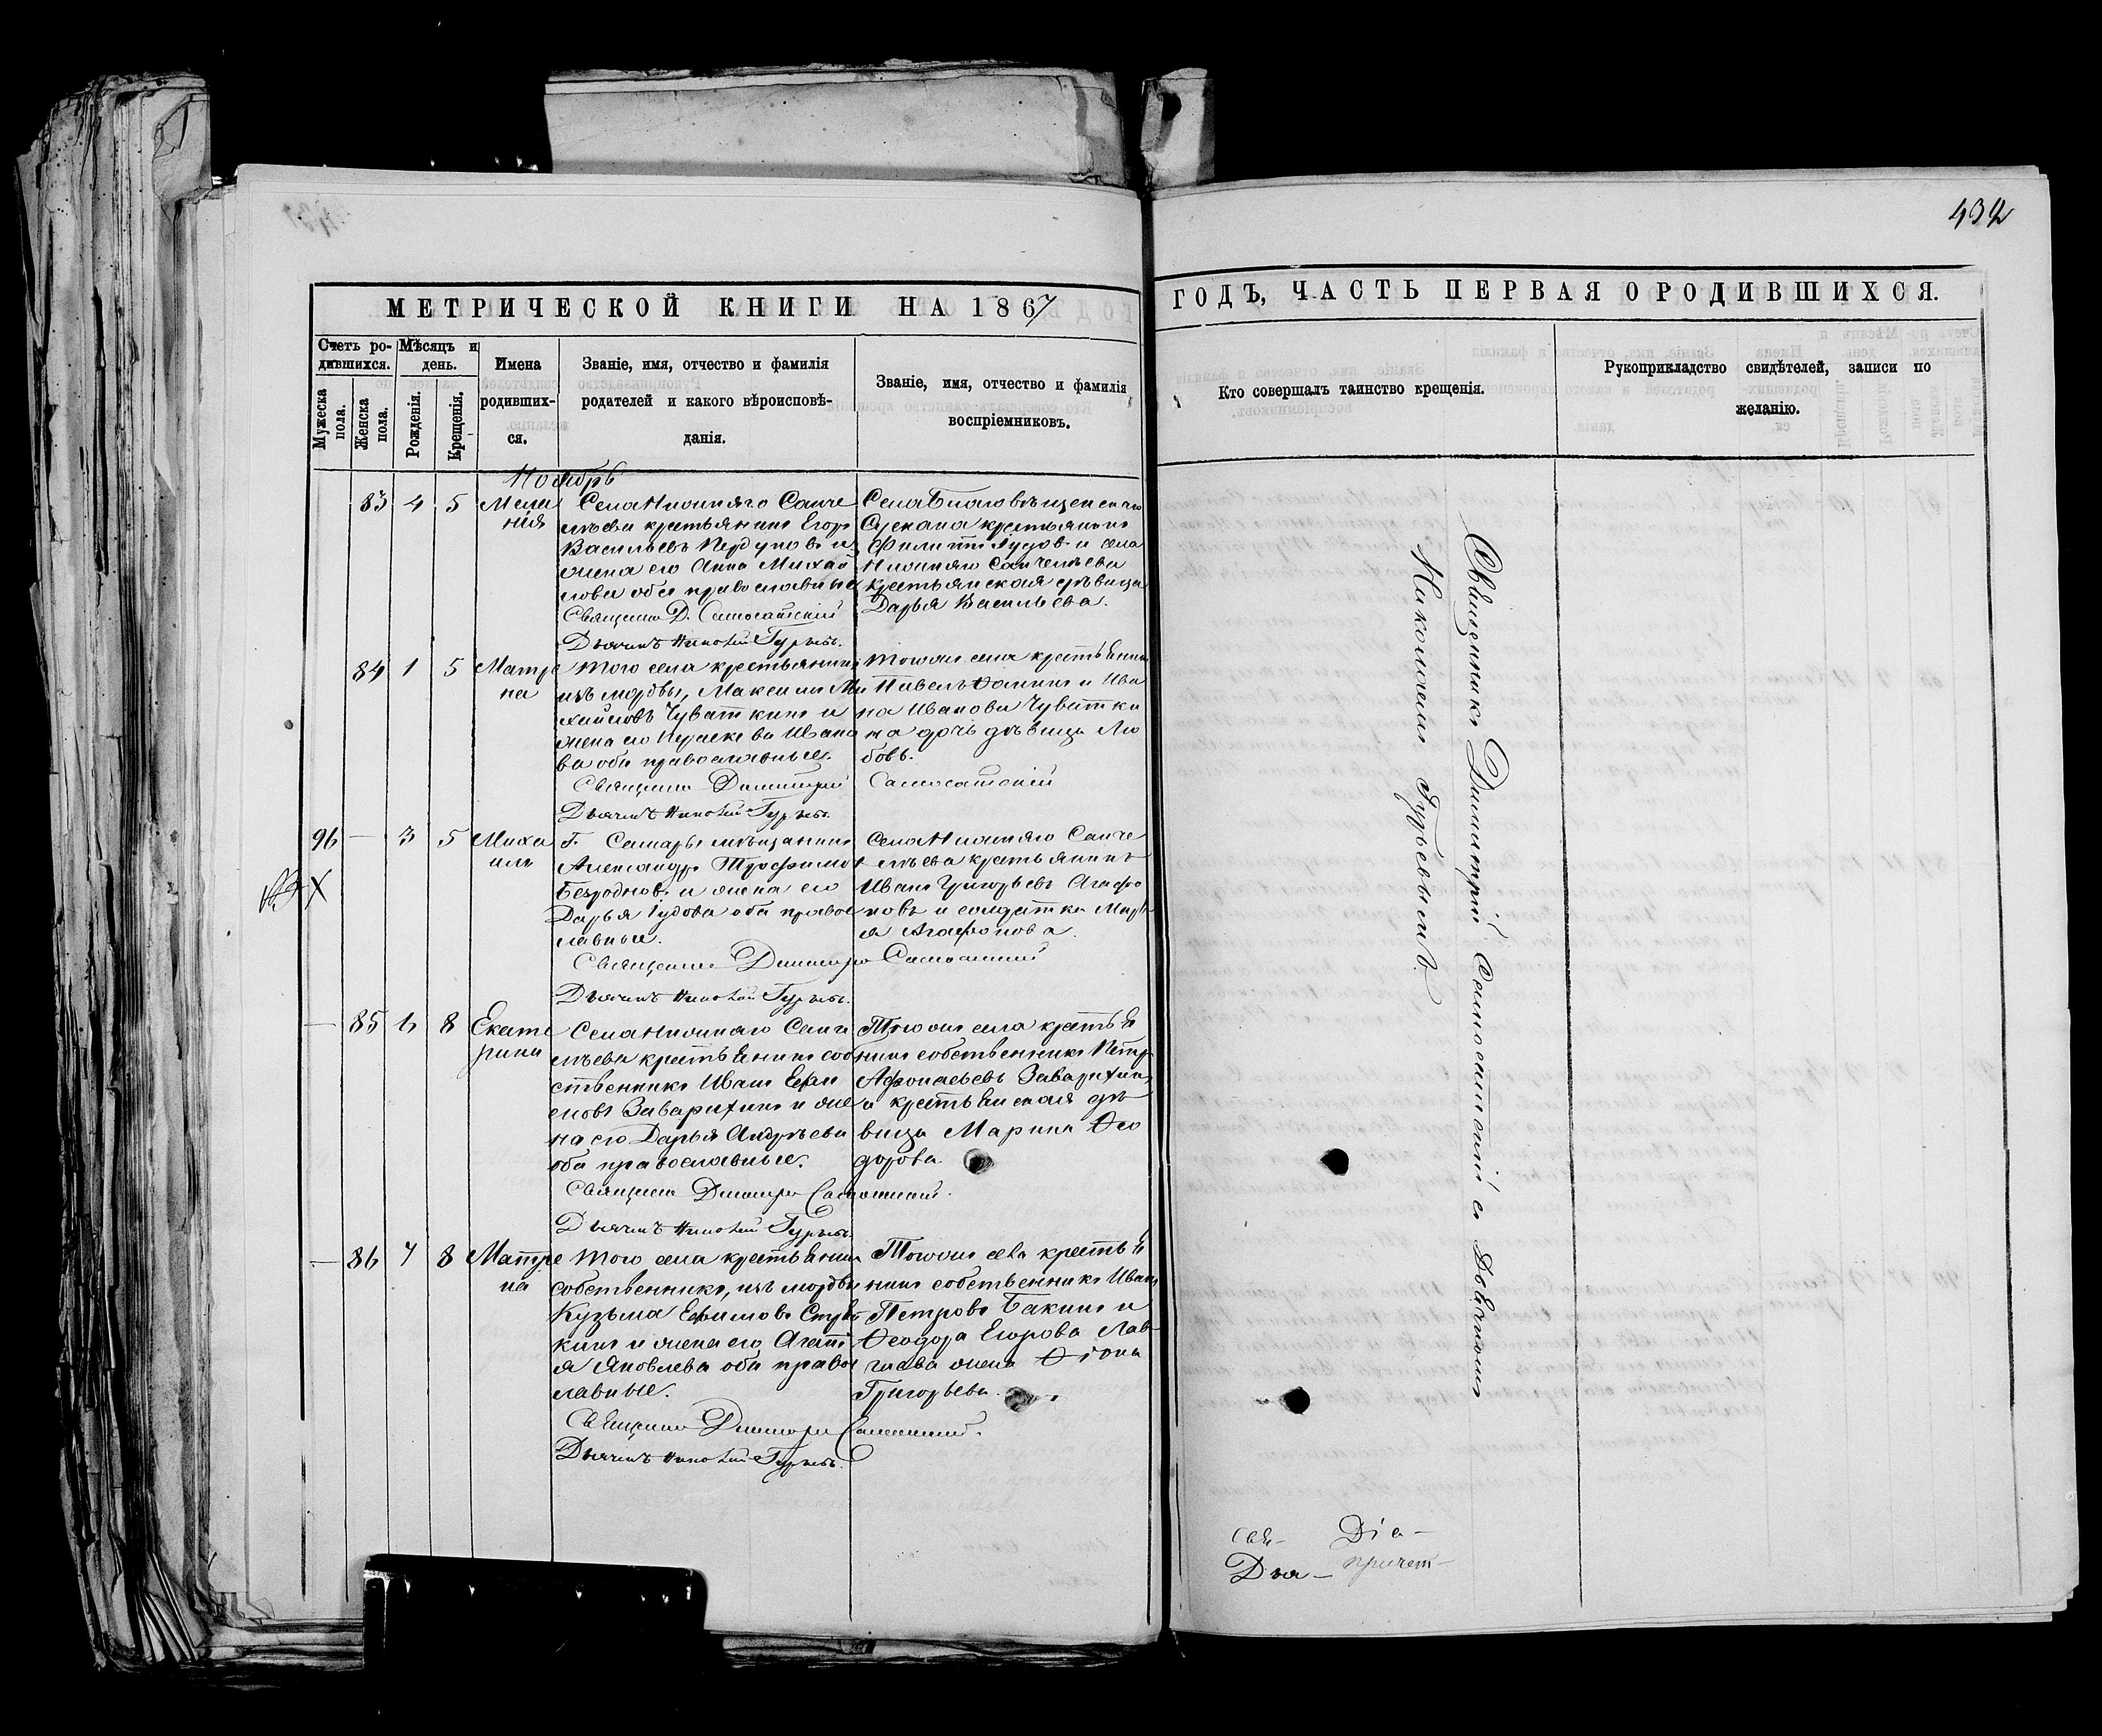 432
МЕТРИЧЕСКОЙ КНИГИ НА 1867
ГОДЪ, ЧАСТЬ ПЕРВАЯ О РОДИВШИХСЯ.
Счетъ ро-
дившихся.
Мѣсяцъ и
день.
Мужеска
пола.
Женска
пола.
Рожденія.
Крещенія.
Имена
родивших-
ся.
Званіе, имя, отчество и фамилія
родителей и какого вѣроисповѣ-
данія.
Званіе, имя, отчество и фамилія
воспріемниковъ.
Кто совершалъ таинство крещенія.
Рукоприкладство свидѣтелей, записи по
желанію.
Ноябрь
83 4 5 Мела
нія
Села Нижняго Санче
лѣева крестьянинъ Егоръ
Васильевъ и
жена его Анна Михай
лова оба православные
Священник Д. Самосатскій
Дьячекъ Николай Гурьевъ.
Села Благовѣщенскаго
крестьянинъ
Филиппъ Гудовъ и села
Нижняго Санчелѣева
крестьянская дѣвица
Дарья Васильева.
84 1 5 Матре
на
Того села крестьянинъ
изъ мордвы, Максимъ Ми
хайловъ Чуваткинъ и
жена его Параскева Ивано
ва оба православные.
Священник Димитрій Самосатскій
Дьячекъ Николай Гурьевъ.
Тогоже села крестьянинъ
Павелъ Ѳоминъ и Ива
на Иванова Чуватки
на дочь дѣвица Лю
бовь.
96 — 3 5 Миха
илъ
Г. Самары мѣщанинъ
Александръ Трофимов
Безродновъ и жена его
Дарья Гудова оба правос
лавные.
Священник Димитрій Самосатскій
Дьячекъ Николай Гурьевъ.
Села Нижняго Санче
лѣева крестьянинъ
Иванъ Григорьевъ Агафо
новъ и солдатка Марь
я Агафонова.
— 85 6 8 Екате
рина
Села Нижняго Санче
лѣева крестьянинъ соб
ственникъ Иванъ Ефи
мовъ Заварихинъ и же
на его Дарья Андрѣева
оба православные.
Священник Димитрій Самосатскій.
Дьячекъ Николай Гурьевъ.
Тогоже села крестья
нинъ собственникъ Петръ
Афонасьевъ Заварихинъ
и крестьянская дѣ
вица Марина Ѳео
дорова.
— 86 7 8 Матре
на
Того села крестьянин
собственникъ, изъ мордвы
Кузьма Ефимовъ
кинъ и жена его Агаѳі
я Яковлева оба правос
лавные.
Священник Димитрій Самосатскій.
Дьячекъ Николай Гурьевъ.
Тогоже села крестья
нинъ собственникъ Иванъ
Петровъ Бакинъ и
Ѳеодора Егорова
жена
Григорьева.
Священникъ Димитрій Самосатскій съ Дьячкомъ
Николаемъ Гурьевымъ.
Свя- Діа-
Дья- причет-